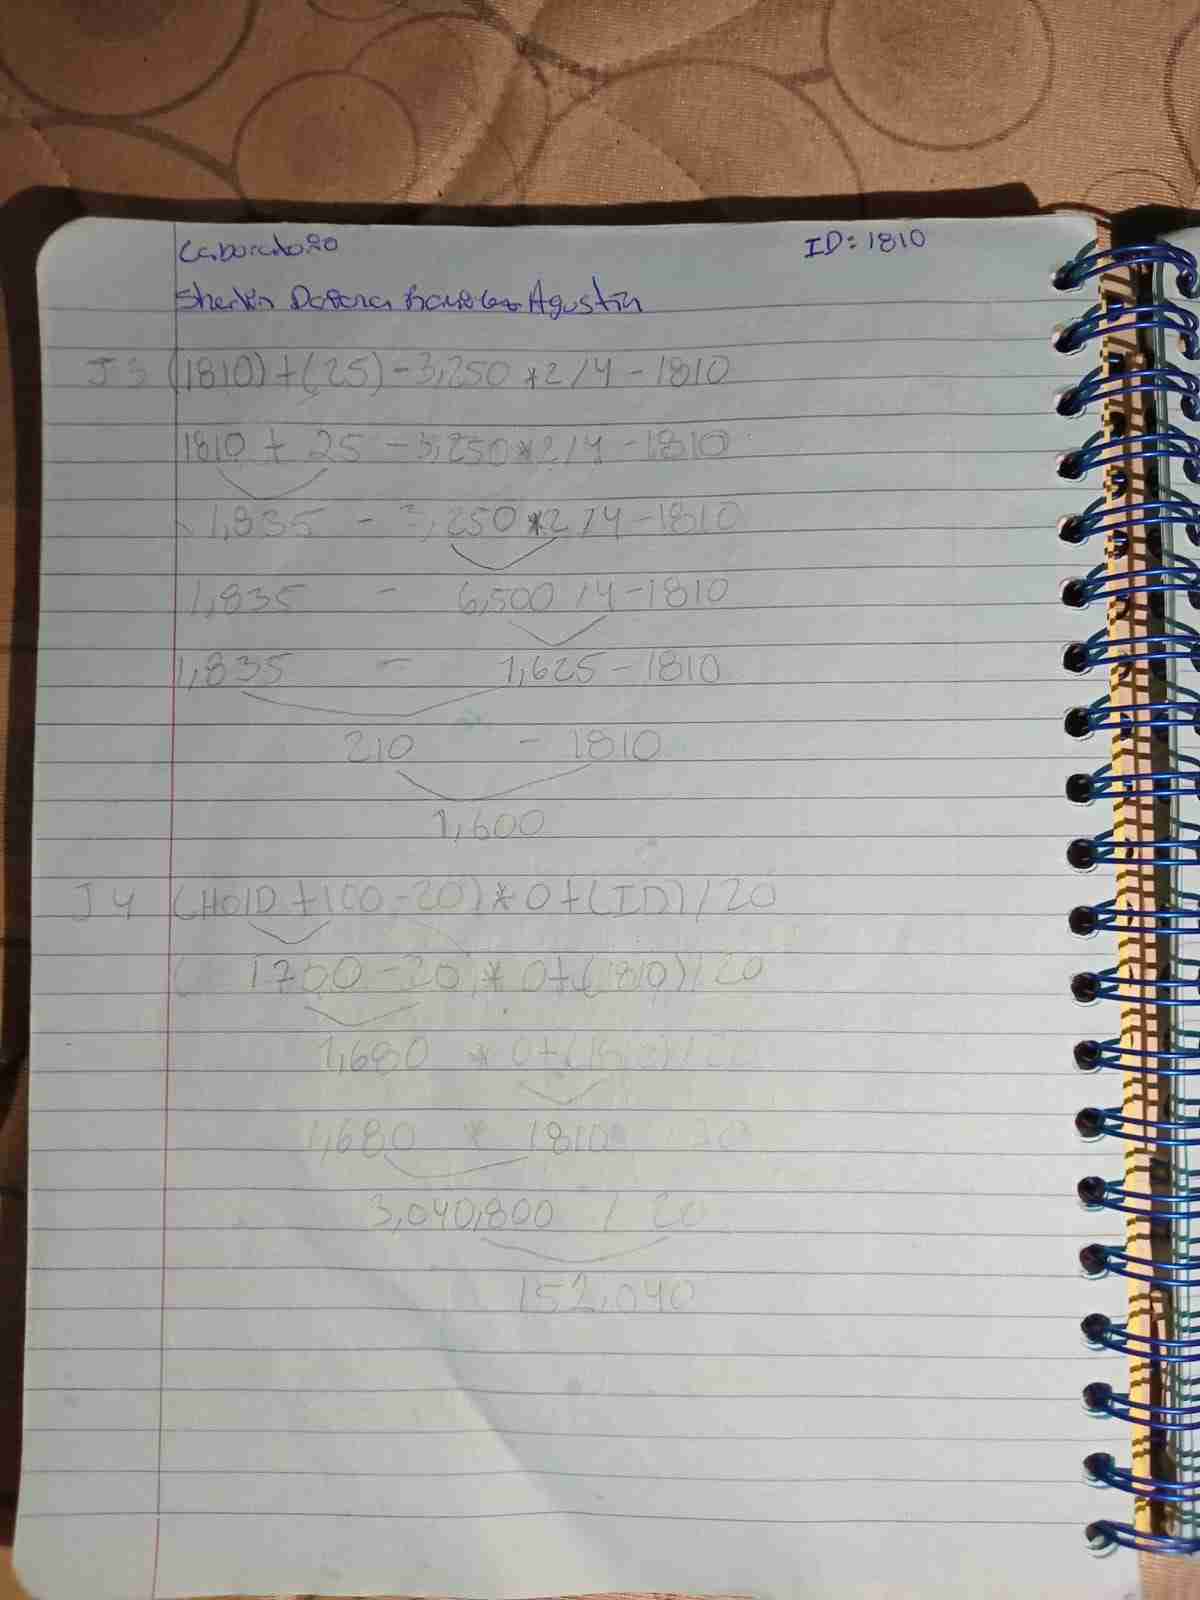 Laboratorio ID: 1810
Agustin
J3 (1810)+(25)-3,250*2/4-1810
1810 + 25 -3,250*2/4-1810
1,835 - 3,250*2/4-1810
1,835 - 6,500/4-1810
1,835 - 1,625-1810
210 - 1810
1,600
J4 (HOID+100-20)*0+(ID)/20
( 1700-20)*0+(1810)/20
1,680 * 0+(1810)/20
1,680 * 1810 /20
3,040,800 / 20
152,040